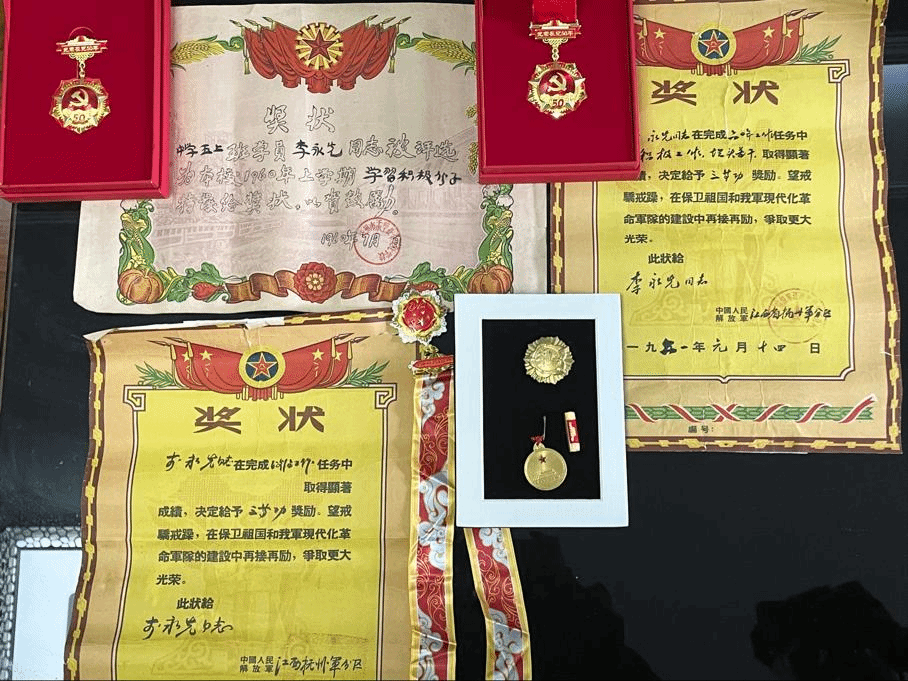 光荣在党50年
50
光荣在党50年
50
奖状
中学五上班学员李永先同志被评选
为本校1960年上学期学習积极分子
特发给奖状，以資鼓励。
1960年7月
奖状
永先同志在完成工作任务中
积极工作，取得顯著
成績，决定給予三等功獎励。望戒
驕戒躁，在保卫祖国和我軍現代化革
命軍隊的建設中再接再励，爭取更大
光荣。
此狀給
李永先同志
中國人民
解放軍江西省撫州軍分区
一九五一年元月十四日
編号：
奖状
李永先同志在完成任务中
取得顯著
成績，决定給予三等功獎励。望戒
驕戒躁，在保卫祖国和我軍現代化革
命軍隊的建設中再接再励，爭取更大
光荣。
此狀給
李永先同志
中國人民
解放軍江西撫州軍分区